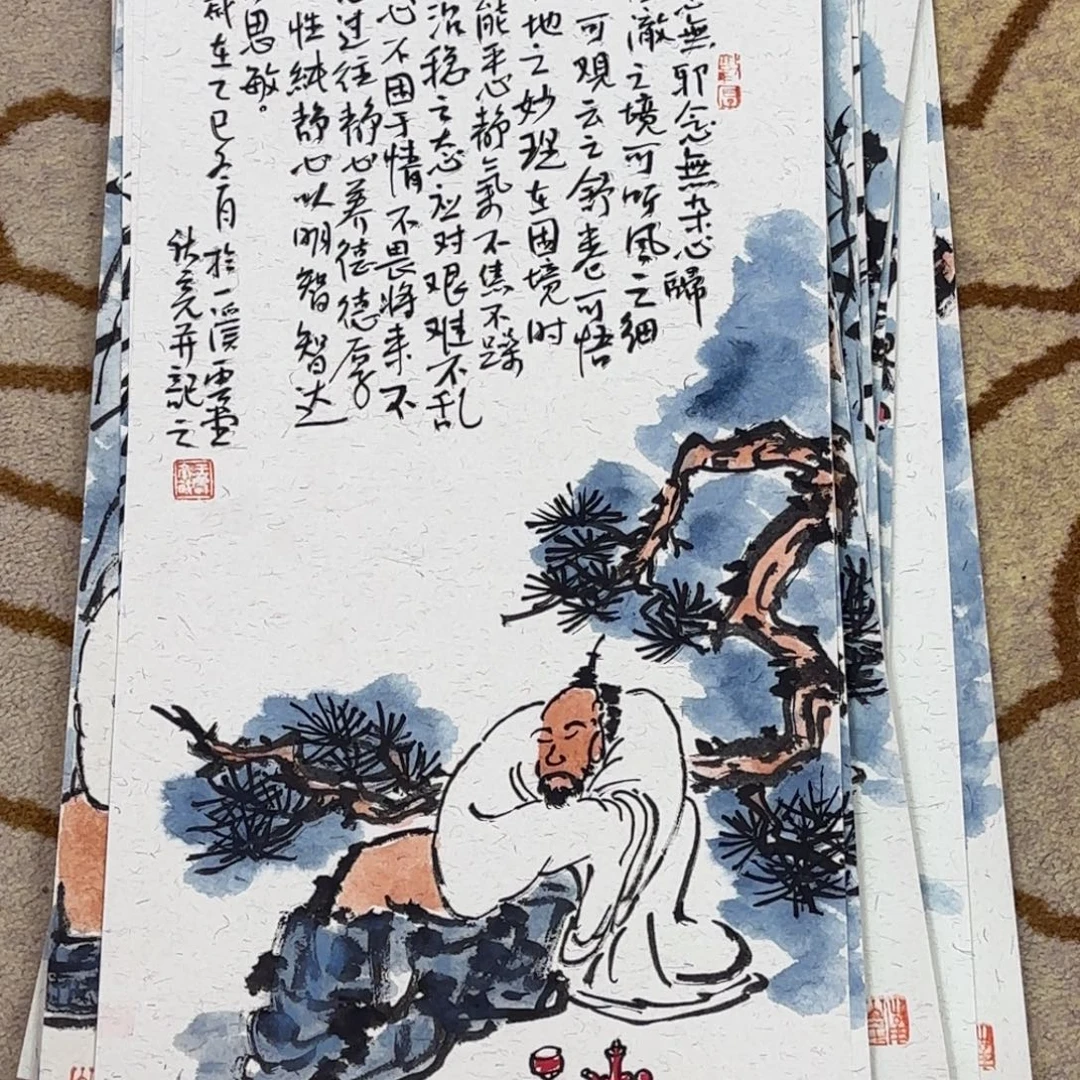 無邪念無杂心歸
澈之境可听风之细
可观云之舒卷可悟
地之妙理在困境时
能平心静氣不焦不躁
沿稳之态应对艰难不乱
心不困于情不畏将来不
过往静心养德德厚
性純静心以明智智达
思敏。
在乙巳冬月於一溪雲堂
並記之